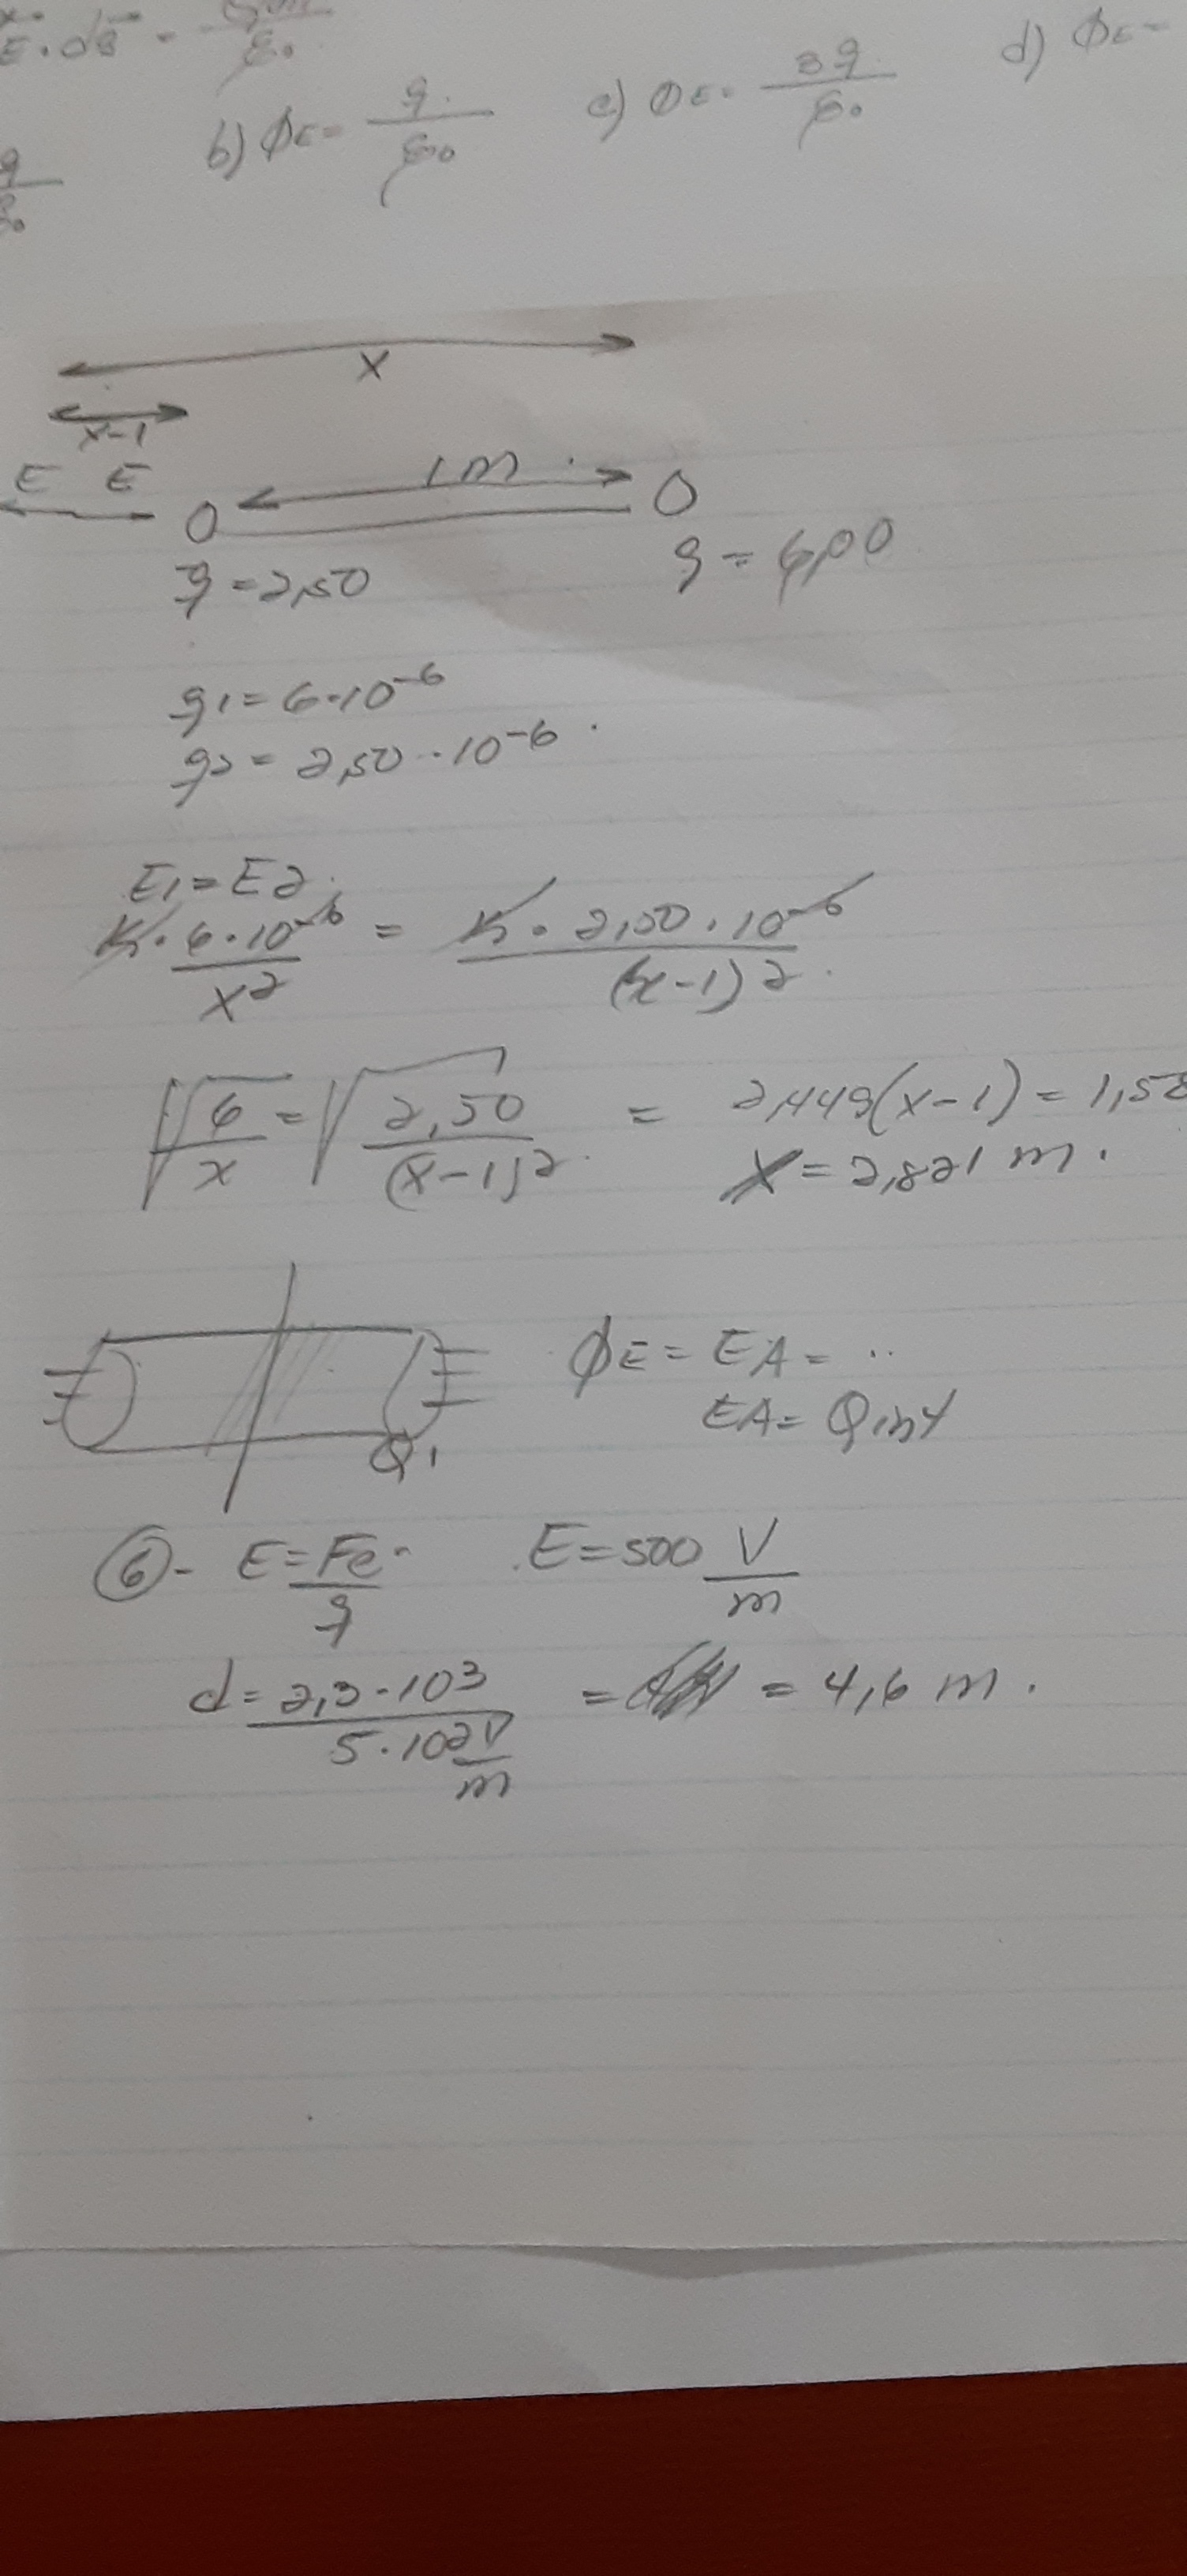 E . ds =
ε₀
b) ΦE = q/ε₀ c) ΦE = 3q/ε₀ d) ΦE =
q/ε₀
x
x-1
E E 1m
q = 2,50 q = 6,00
q1 = 6·10⁻⁶
q2 = 2,50 · 10⁻⁶
E1 = E2
K · 6·10⁻⁶/x² = K · 2,50 · 10⁻⁶/(x-1)²
√6/x = √2,50/(x-1)² = 2,449(x-1) = 1,58
x = 2,821 m.
ΦE = EA = ..
EA = Qint
Q1
6- E = Fe/q E = 500 V/m
d = 2,3·10³/5·10² V/m = = 4,6 m.